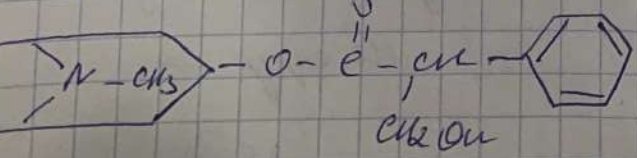 O
N - CH3 - O - C - CH -
CH2OH